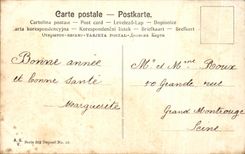 Carte postale – Postkarte.
Cartolina postale – Post card – Levelező-Lap – Dopisnice
Karta korespondencyjna – Korespondenční lístek – Briefkaart – Brefkort
TARJETA POSTAL
Bonne année
et bonne santé
Marguerite
Mr et Mme Roux
10 Grande rue
Grand Montrouge
Seine
Serie